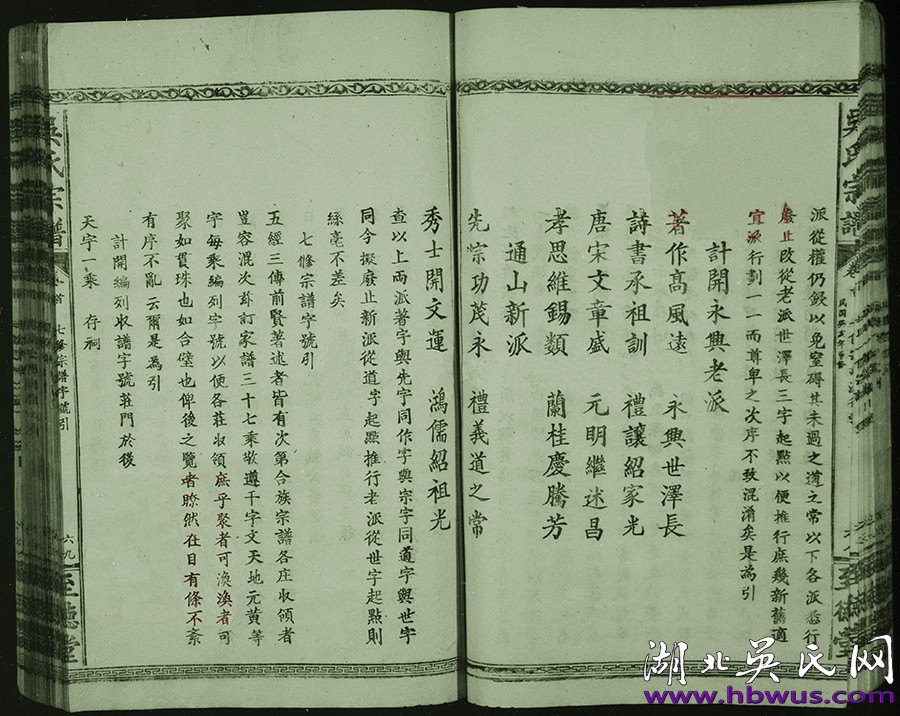 派從權仍録以免窒碍其未過之道之常以下各派悉行
廢止改從老派世澤長三字起點以便推行庶幾新舊適
宜派行劃一一而尊卑之次序不致混淆矣是為引
計開永興老派
著作高風遠 永興世澤長
詩書承祖訓 禮讓紹家光
唐宋文章盛 元明繼述昌
孝思維錫類 蘭桂慶騰芳
通山新派
先宗功茂永 禮義道之常
秀士開文運 鴻儒紹祖光
查以上兩派著字與先字同作字與宗字同道字與世字
同今擬廢止新派從道字起點推行老派從世字起點則
絲毫不差矣
七修宗譜字號引
五經三傳前賢著述者皆有次第合族宗譜各庄収領者
豈容混次茲訂家譜三十七乘敬遵千字文天地元黃等
字每乘編列字號以便各莊収領庶乎聚者可渙渙者可
聚如貫珠也如合璧也俾後之覽者瞭然在目有條不紊
有序不亂云爾是為引
計開編列収譜字號莊門於後
天字一乘 存祠
吳氏宗譜
卷首
七修宗譜字號引
六九
至德堂
吳氏宗譜
至德堂
湖北吴氏网
www.hbwus.com